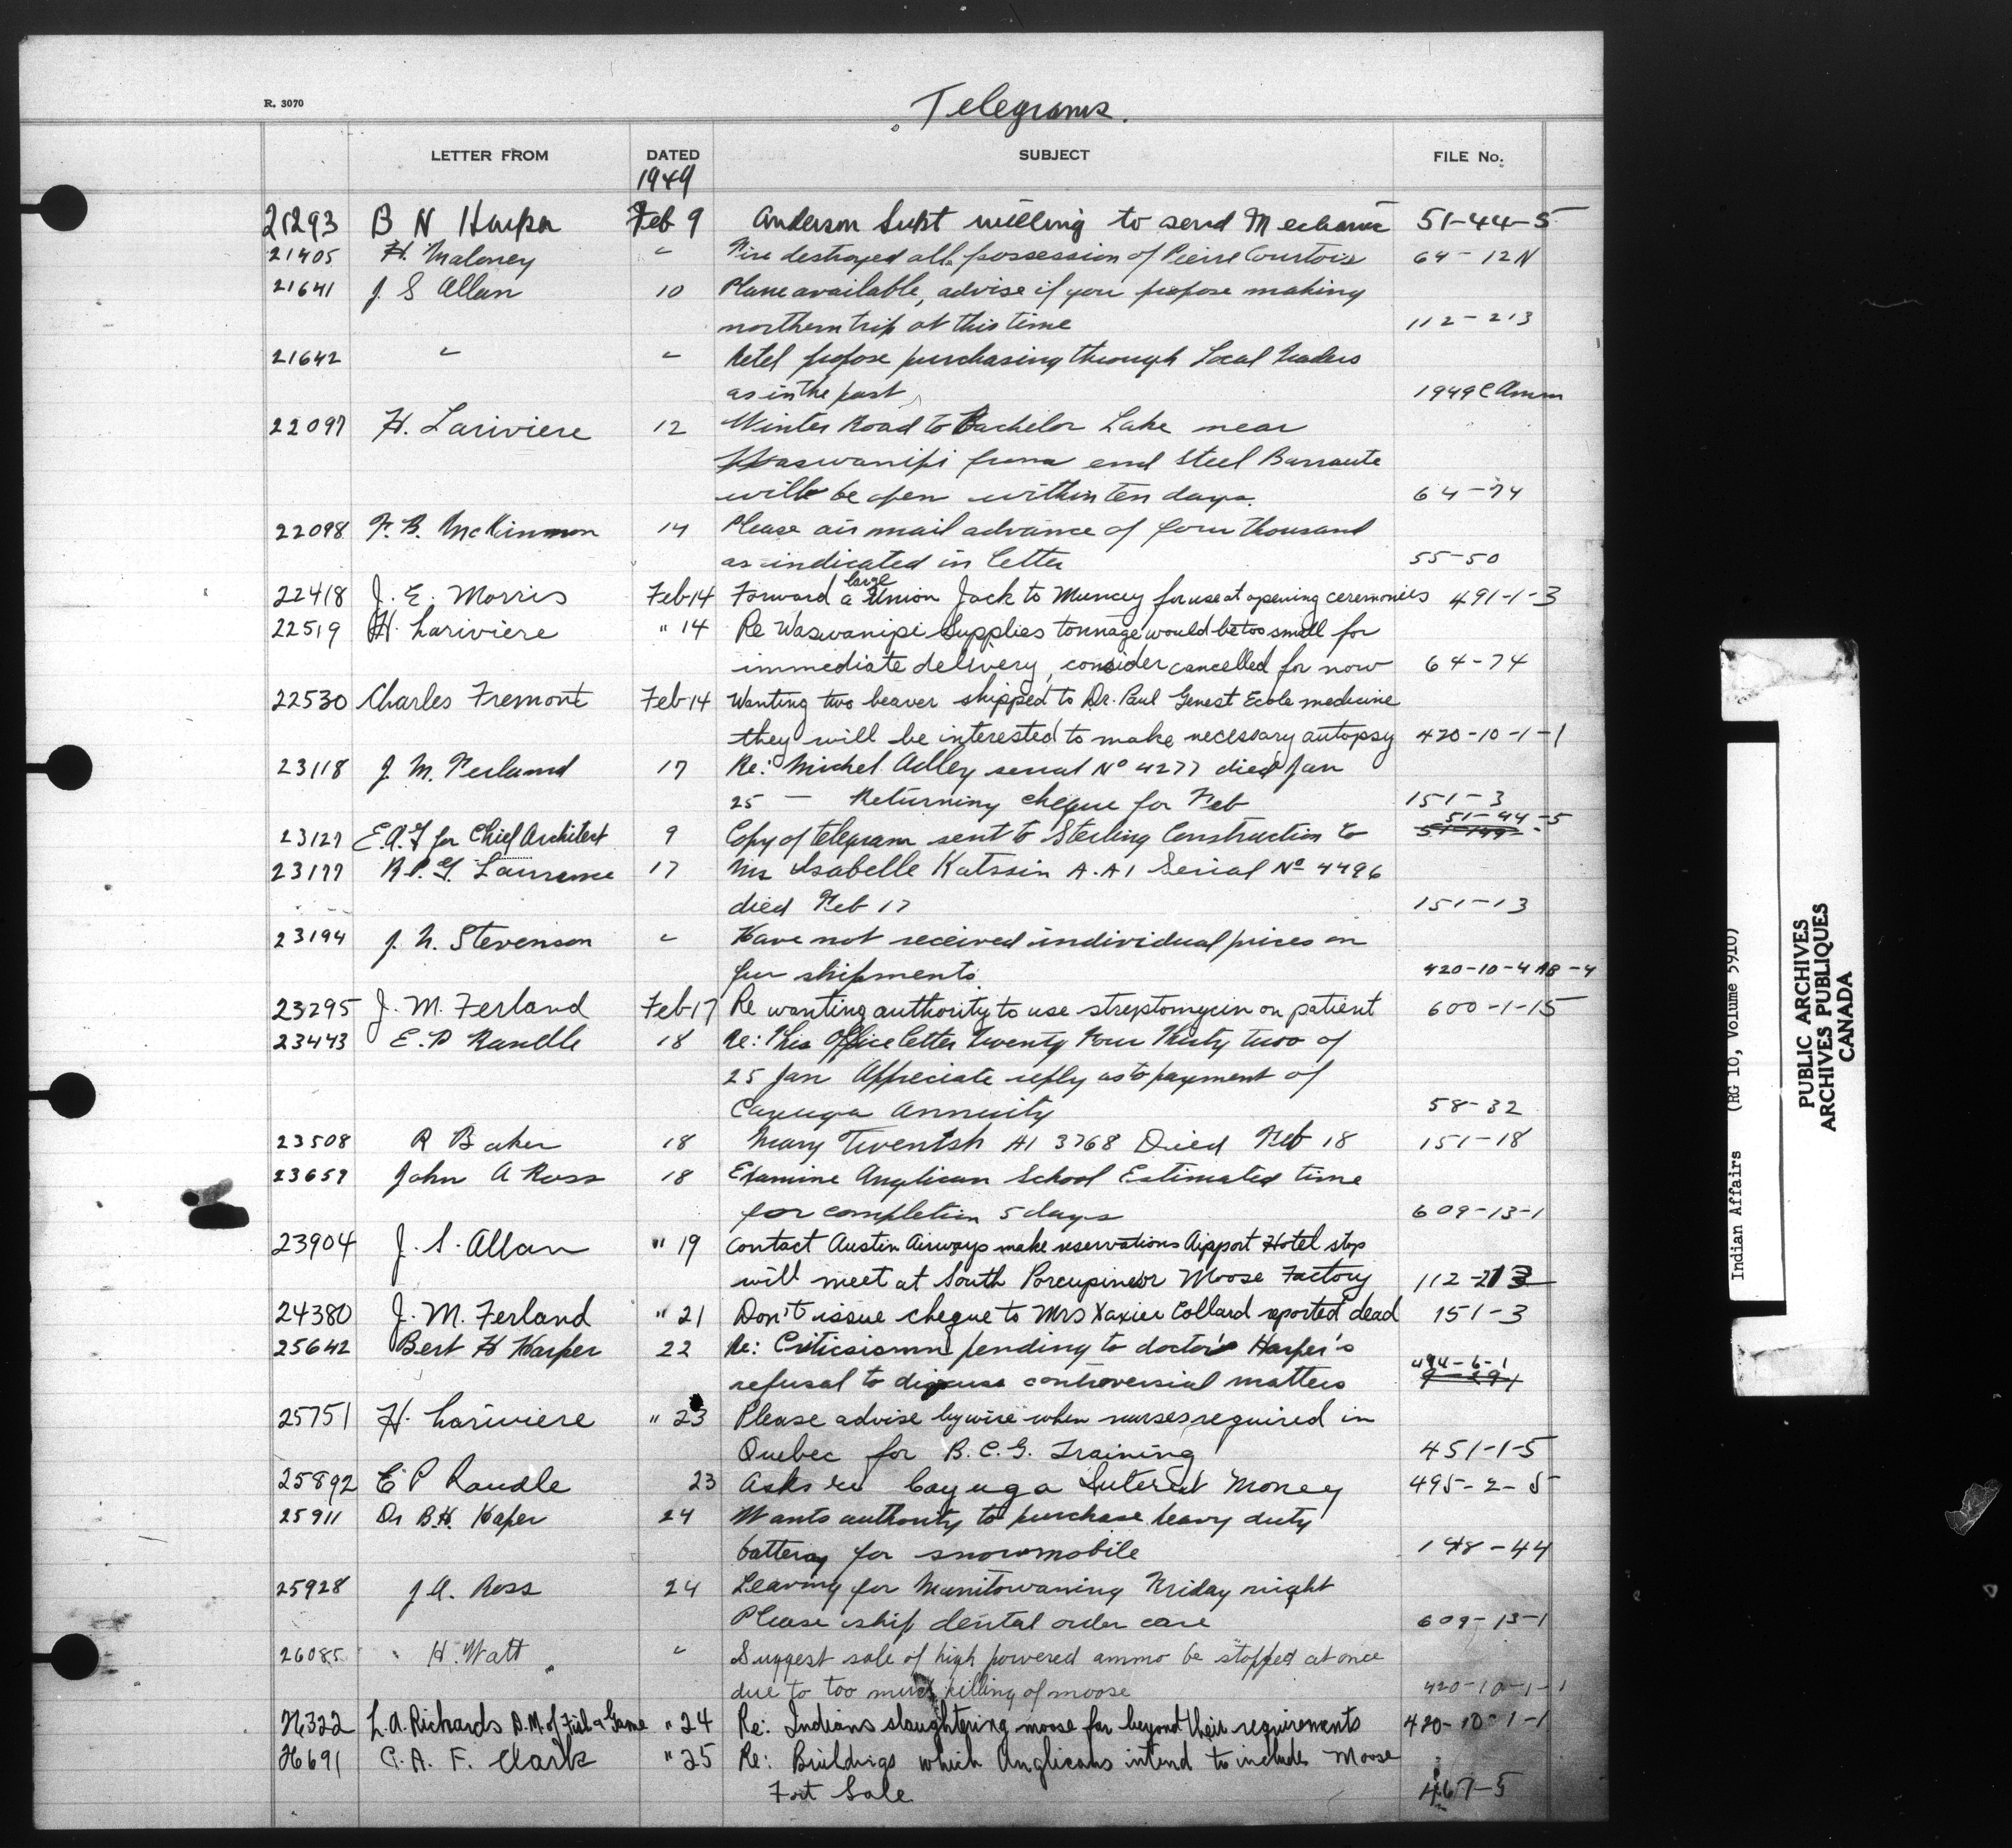 R. 3070
Telegrams.
LETTER FROM DATED SUBJECT FILE No.
1949
21293 B H Harper Feb 9 Anderson Supt willing to send Mechanic 51-44-5
21405 H. Maloney " Fire destroyed all possession of Pierre Courtois 64-12N
21641 J S Allan 10 Plane available, advise if you propose making
northern trip at this time 112-213
21642 " " Retel propose purchasing through Local Traders
as in the past 1949 C Amm
22097 H. Lariviere 12 Winter Road to Bachelor Lake near
Waswanipi from end Steel Barraute
will be open within ten days. 64-74
22098 F. B. McKinnon 14 Please air mail advance of four thousand
as indicated in letter 55-50
22418 J. E. Morris Feb 14 Forward a large Union Jack to Muncey for use at opening ceremonies 491-1-3
22519 H. Lariviere " 14 Re Waswanipi Supplies tonnage would be too small for
immediate delivery, consider cancelled for now 64-74
22530 Charles Fremont Feb 14 Wanting two beaver shipped to Dr. Paul Genest Ecole medicine
they will be interested to make necessary autopsy 420-10-1-1
23118 J. M. Ferland 17 Re: Michel Adley serial No 4277 died Jan
25 — Returning cheque for Feb 151-3
23127 E.A.G for Chief Architect 9 Copy of telegram sent to Sterling Construction Co 51-44-5
23177 R.P.G. Laurence 17 Mrs Isabelle Katssin A.A1 Serial No 4496
died Feb 17 151-13
23194 J. N. Stevenson " Have not received individual prices on
fur shipments. 420-10-4 AB-4
23295 J. M. Ferland Feb 17 Re wanting authority to use streptomycin on patient 600-1-15
23443 E. P Randle 18 Re: This Office letter Twenty Four Thirty two of
25 Jan Appreciate reply as to payment of
Cayuga Annuity 58-32
23508 R Baker 18 Mary Twentsh A1 3768 Died Feb 18 151-18
23657 John A Ross 18 Examine Anglican School Estimated time
for completion 5 days 609-13-1
23904 J. S. Allan " 19 Contact Austin Airways make reservations Airport Hotel stop
will meet at South Porcupine or Moose Factory 112-213
24380 J. M. Ferland " 21 Don't issue cheque to Mrs Xavier Collard reported dead 151-3
25642 Bert H Harper 22 Re: Criticisismn pending to doctor's Harper's
refusal to discuss controversial matters 494-6-1
25751 H. Lariviere " 23 Please advise by wire when nurses required in
Quebec for B.C.G. Training 451-1-5
25892 E P Randle 23 Asks re Cayuga Interest Money 495-2-5
25911 Dr B.H. Haper 24 Wants authority to purchase heavy duty
battery for snowmobile 148-44
25928 J A. Ross 24 Leaving for Manitowaning Friday night
Please ship dental order care 609-13-1
26085 H. Watt " Suggest sale of high powered ammo be stopped at once
due to too much killing of moose 420-10-1-1
26322 L.A. Richards D.M. of Fish & Game " 24 Re: Indians slaughtering moose far beyond their requirements 420-10-1-1
26691 C. A. F. Clark " 25 Re: Buildings which Anglicans intend to include Moose
Fort Sale 467-5
Indian Affairs (RG 10, Volume 5910)
PUBLIC ARCHIVES
ARCHIVES PUBLIQUES
CANADA